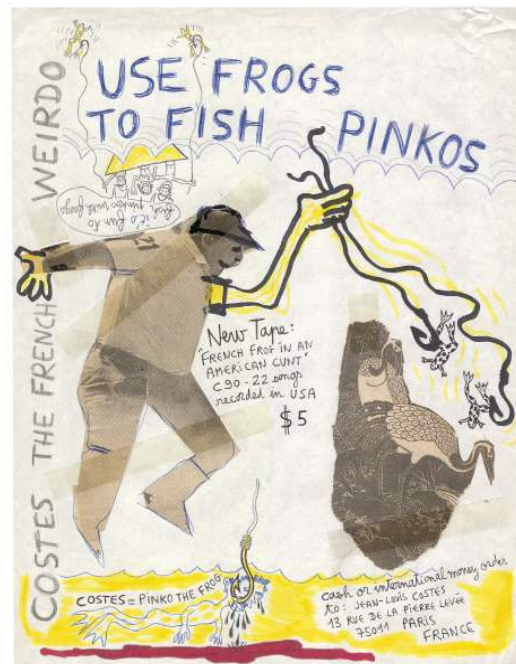 COSTES THE FRENCH WEIRDO
USE FROGS
TO FISH PINKOS
it's fun to
fish pinkos with frogs
New Tape:
"FRENCH FROG IN AN
AMERICAN CUNT"
C90-22 songs
recorded in USA
$5
COSTES = PINKO THE FROG
cash or international money order
to: JEAN-LOUIS COSTES
13 RUE DE LA PIERRE LEVÉE
75011 PARIS
FRANCE